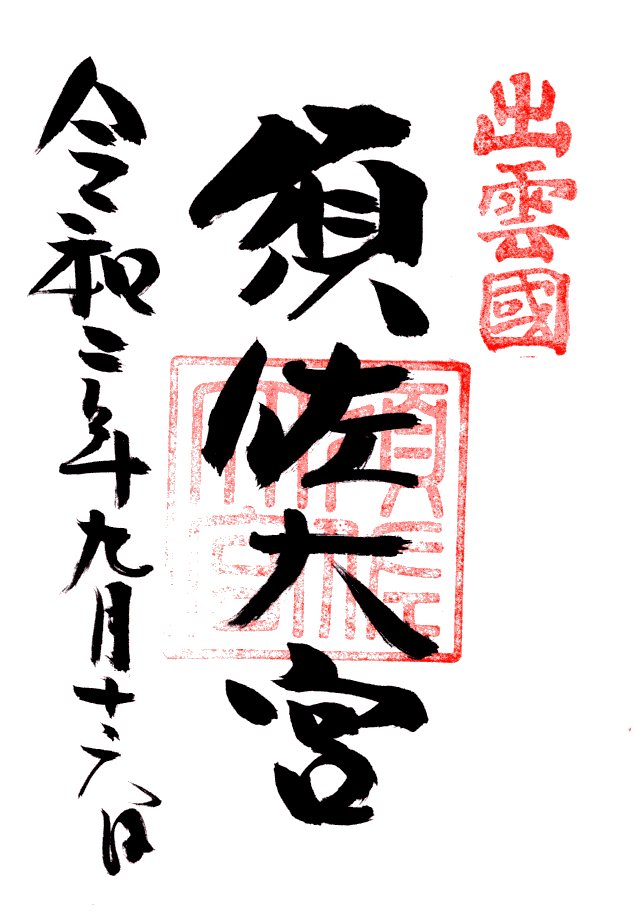 出雲國
須佐大宮
令和二年九月十六日